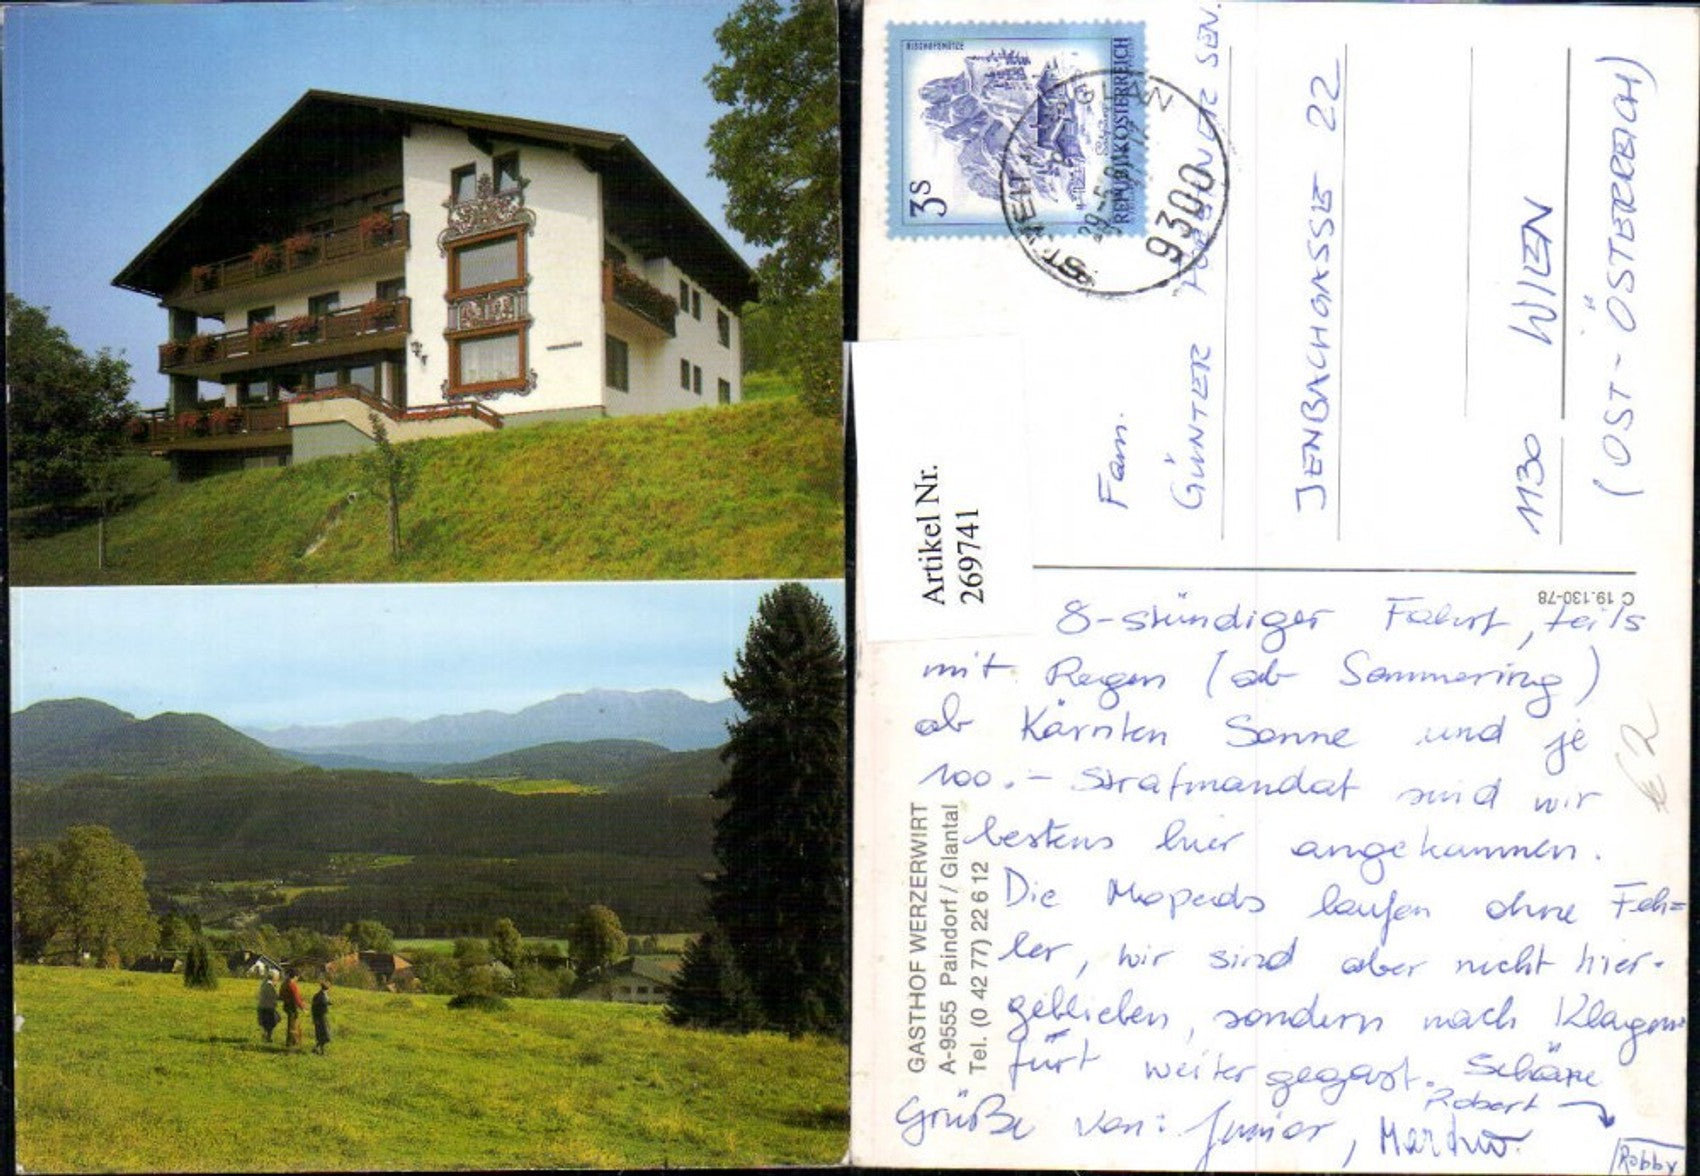 BISCHOFSMÜTZE
3 S
REPUBLIK ÖSTERREICH
ST. VEIT A D GLAN
9300
Artikel Nr.
269741
Fam.
GÜNTER SEN.
JENBACHGASSE 22
1130 WIEN
(OST-ÖSTERREICH)
C 19.130-78
8-stündiger Fahrt, teils
mit Regen (ab Semmering)
ab Kärnten Sonne und je
100.- Strafmandat sind wir
bestens hier angekommen.
Die Mopeds laufen ohne Feh=
ler, wir sind aber nicht hier-
geblieben, sondern nach Klagen-
furt weiter gegast. Schöne
Grüße von: Junior,
Robert
Robby
€ 2
GASTHOF WERZERWIRT
A-9555 Paindorf / Glantal
Tel. (0 42 77) 22 6 12